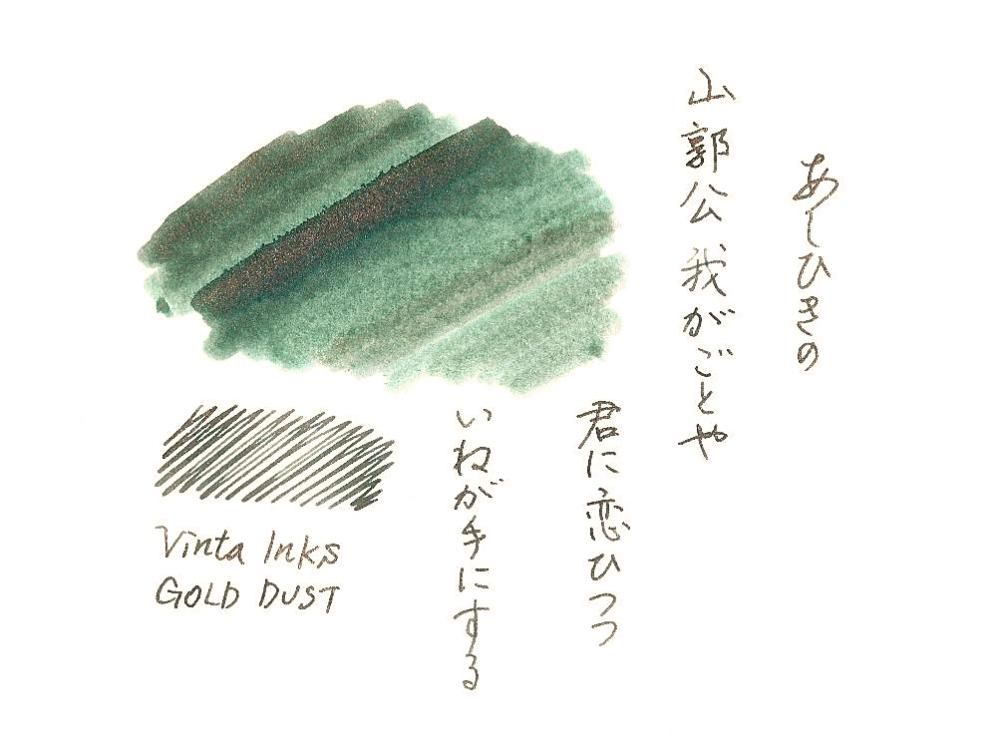 あしひきの
山郭公我がごとや
君に恋ひつつ
いねが手にする
Vinta Inks
GOLD DUST